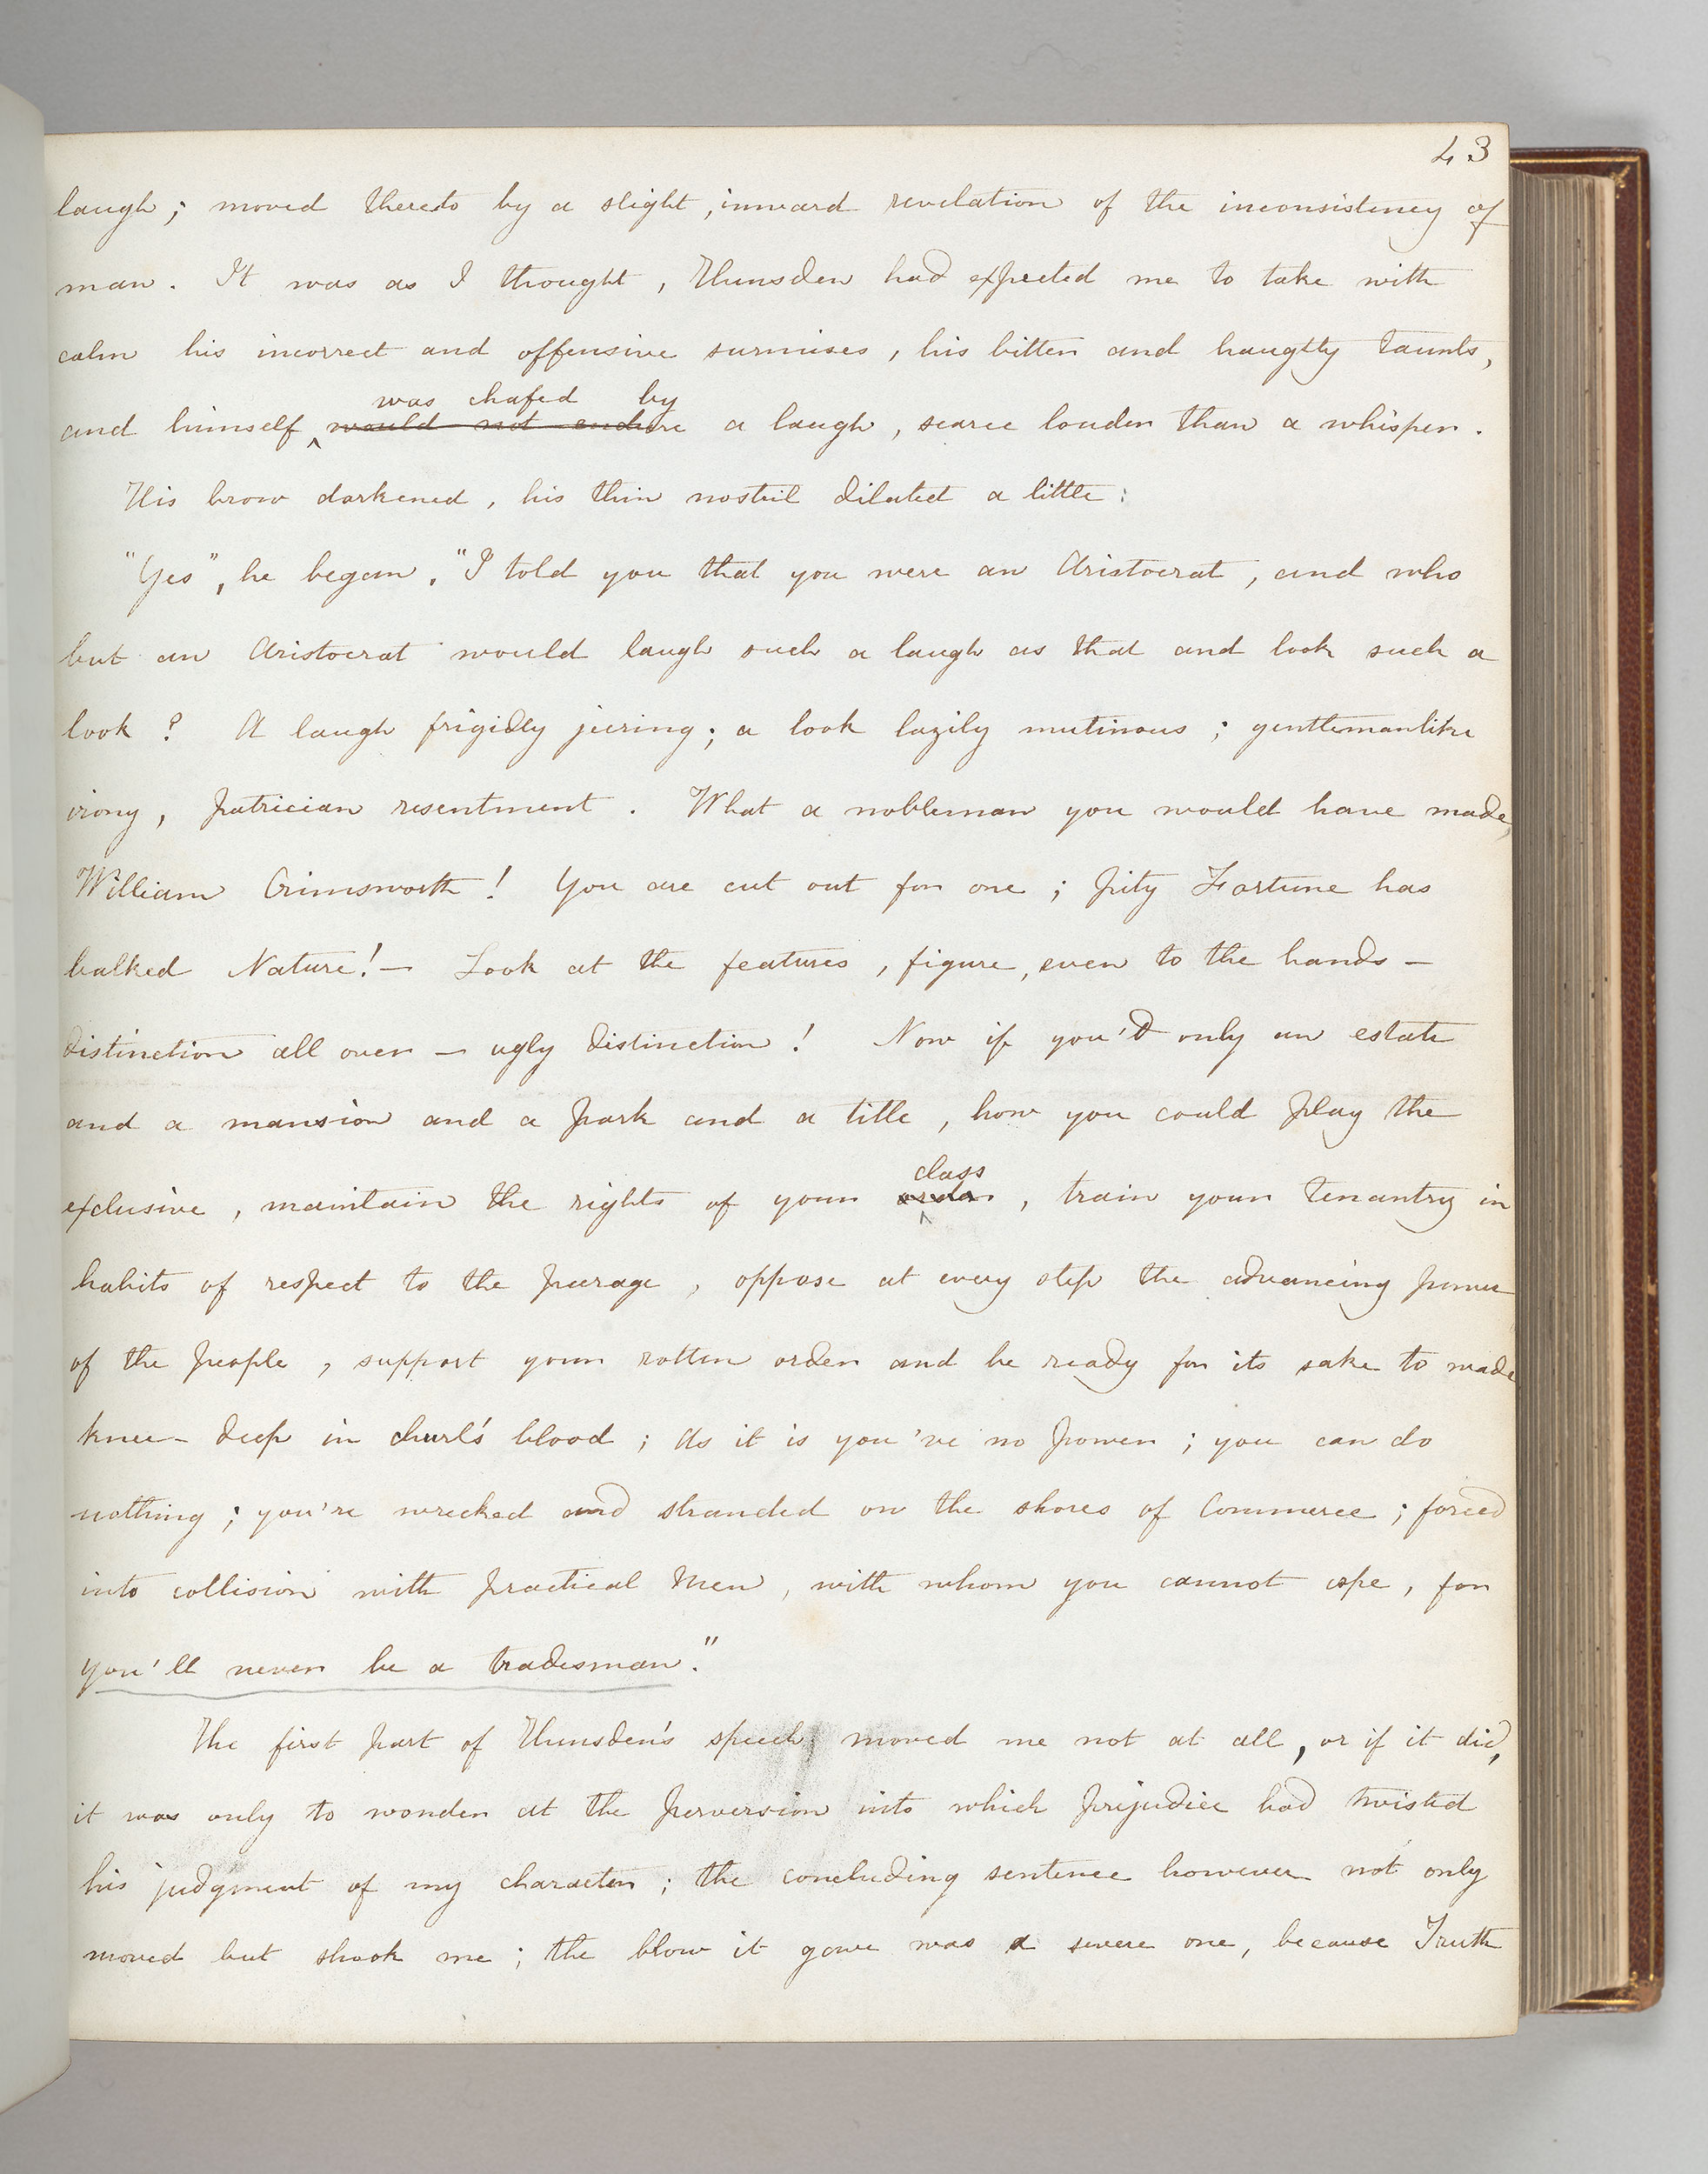 43
laugh; moved thereto by a slight, inward revelation of the inconsistency of
man. It was as I thought, Hunsden had expected me to take with
calm his incorrect and offensive surmises, his bitter and haughty taunts,
was chafed by
and himself would not endure a laugh, scarce louder than a whisper.
His brow darkened, his thin nostril dilated a little:
"Yes", he began, "I told you that you were an Aristocrat, and who
but an Aristocrat would laugh such a laugh as that and look such a
look? A laugh frigidly jeering; a look lazily mutinous; gentlemanlike
irony, patrician resentment. What a nobleman you would have made,
William Crimsworth! You are cut out for one; pity Fortune has
balked Nature!— Look at the features, figure, even to the hands—
distinction all over — ugly distinction! Now if you'd only an estate
and a mansion and a park and a title, how you could play the
class
exclusive, maintain the rights of your order, train your tenantry in
habits of respect to the peerage, oppose at every step the advancing power
of the people, support your rotten order and be ready for its sake to wade
knee-deep in churl's blood; As it is you've no power; you can do
nothing; you're wrecked and stranded on the shores of Commerce; forced
into collision with practical Men, with whom you cannot cope, for
you'll never be a tradesman."
The first part of Hunsden's speech moved me not at all, or if it did,
it was only to wonder at the perversion into which prejudice had twisted
his judgment of my character; the concluding sentence however not only
moved but shook me; the blow it gave was a severe one, because Truth